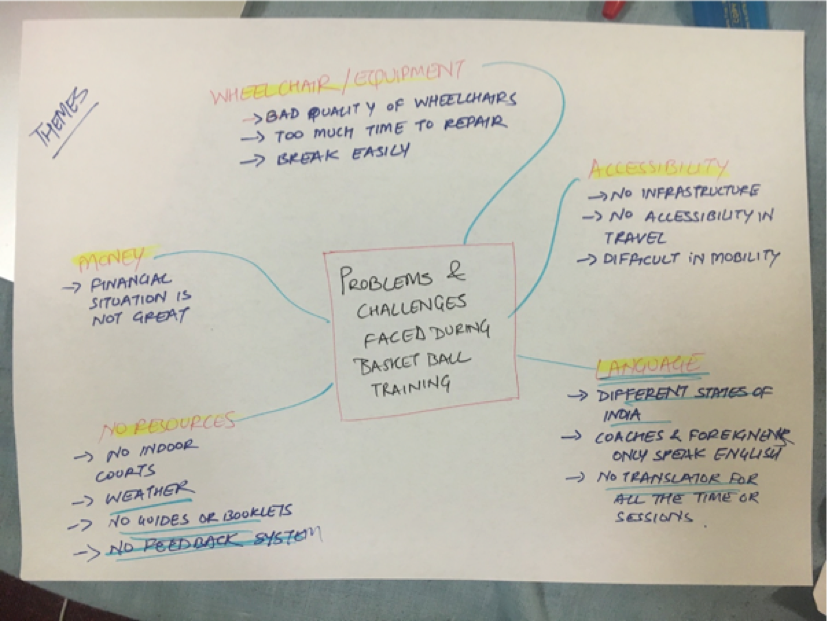 THEMES
WHEELCHAIR/EQUIPMENT
→ BAD QUALITY OF WHEELCHAIRS
→ TOO MUCH TIME TO REPAIR
→ BREAK EASILY
ACCESSIBILITY
→ NO INFRASTRUCTURE
→ NO ACCESSIBILITY IN
TRAVEL
→ DIFFICULT IN MOBILITY
MONEY
→ FINANCIAL
SITUATION IS
NOT GREAT
PROBLEMS &
CHALLENGES
FACED DURING
BASKET BALL
TRAINING
LANGUAGE
→ DIFFERENT STATES OF
INDIA
→ COACHES & FOREIGNERS
ONLY SPEAK ENGLISH
→ NO TRANSLATOR FOR
ALL THE TIME OR
SESSIONS.
NO RESOURCES
→ NO INDOOR
COURTS
→ WEATHER
→ NO GUIDES OR BOOKLETS
→ NO FEEDBACK SYSTEM